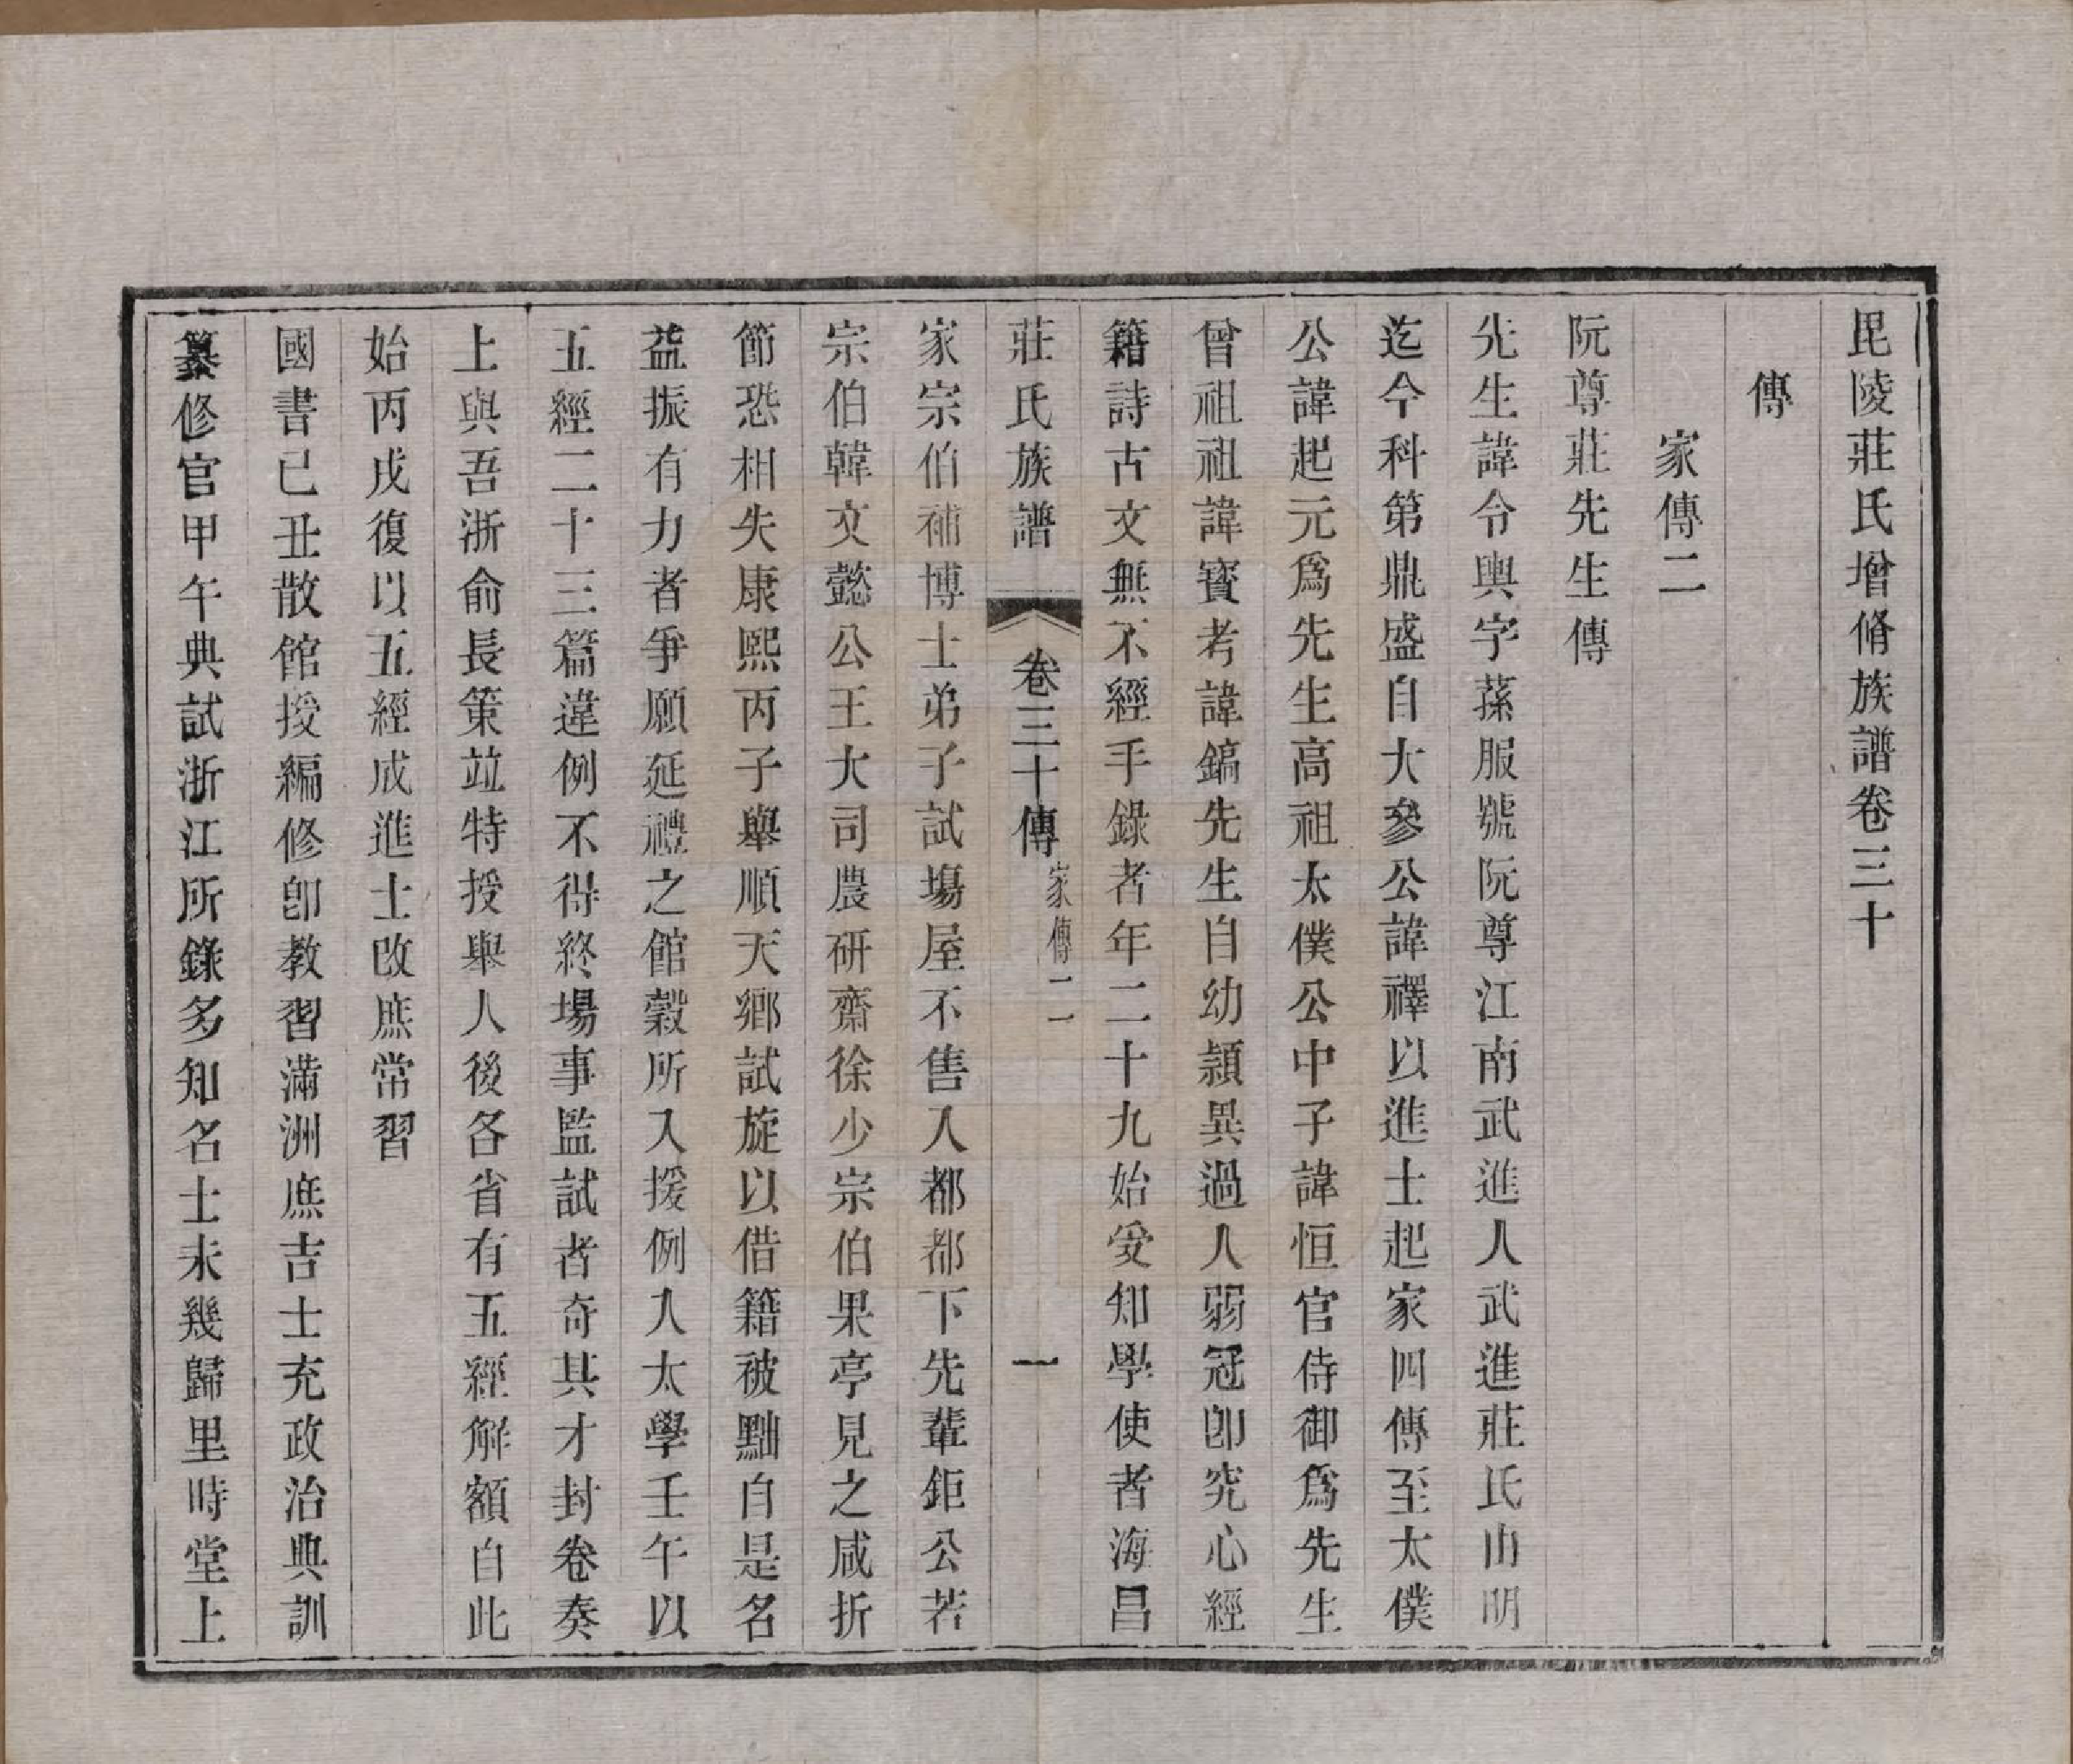 毘陵莊氏增脩族譜卷三十
傳
家傳二
阮尊莊先生傳
先生諱令輿字蓀服號阮尊江南武進人武進莊氏由明
迄今科第鼎盛自大參公諱禪以進士起家四傳至太僕
公諱起元爲先生高祖太僕公中子諱恒官侍御爲先生
曾祖祖諱寶考諱鎬先生自幼穎異過人弱冠卽究心經
籍詩古文無不經手錄者年二十九始受知學使者海昌
莊氏族譜 卷三十傳 家傳二 一
家宗伯補博士弟子試塲屋不售入都都下先輩鉅公若
宗伯韓文懿公王大司農研齋徐少宗伯果亭見之咸折
節恐相失康熙丙子舉順天鄉試旋以借籍被黜自是名
益振有力者爭願延禮之館穀所入援例入太學壬午以
五經二十三篇違例不得終場事監試者奇其才封卷奏
上與吾浙俞長策竝特授舉人後各省有五經解額自此
始丙戌復以五經成進士改庶常習
國書己丑散館授編修卽教習滿洲庶吉士充政治典訓
纂修官甲午典試浙江所錄多知名士未幾歸里時堂上